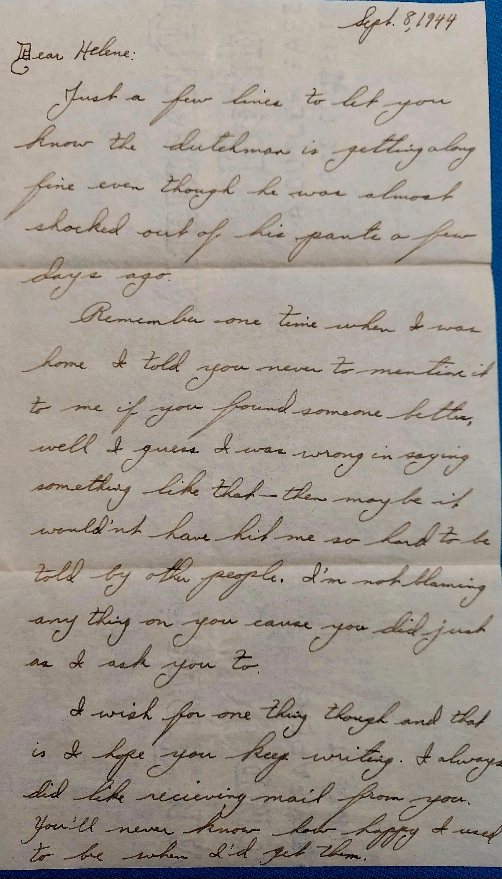 Sept. 8, 1944
Dear Helene:
Just a few lines to let you
know the dutchman is getting along
fine even though he was almost
shocked out of his pants a few
days ago.
Remember one time when I was
home I told you never to mention it
to me if you found someone better,
well I guess I was wrong in saying
something like that - then maybe it
would'nt have hit me so hard to be
told by other people. I'm not blaming
any thing on you cause you did just
as I ask you to.
I wish for one thing though and that
is I hope you keep writing. I always
did like recieving mail from you.
You'll never know how happy I used
to be when I'd get them.